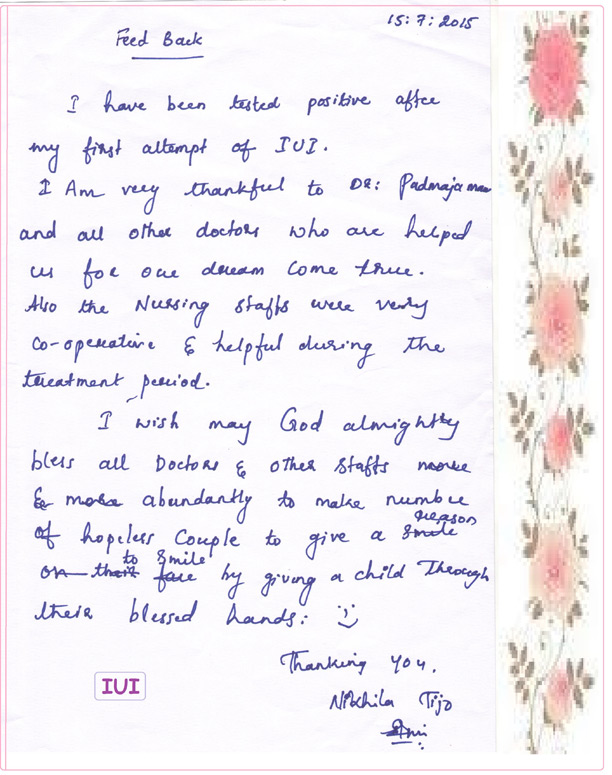 15:7:2015
Feed Back
I have been tested positive after
my first attempt of IUI.
I Am very thankful to DR: Padmaja mam
and all other doctors who are helped
us for our dream come true.
Also the Nursing staffs were very
co-operative & helpful during the
treatment period.
I wish may God almighty
bless all Doctors & other staffs more
& more abundantly to make number
of hopeless couple to give a smile reason
on their face to smile by giving a child Through
their blessed hands: :)
Thanking you.
Nikhila Tijo
IUI